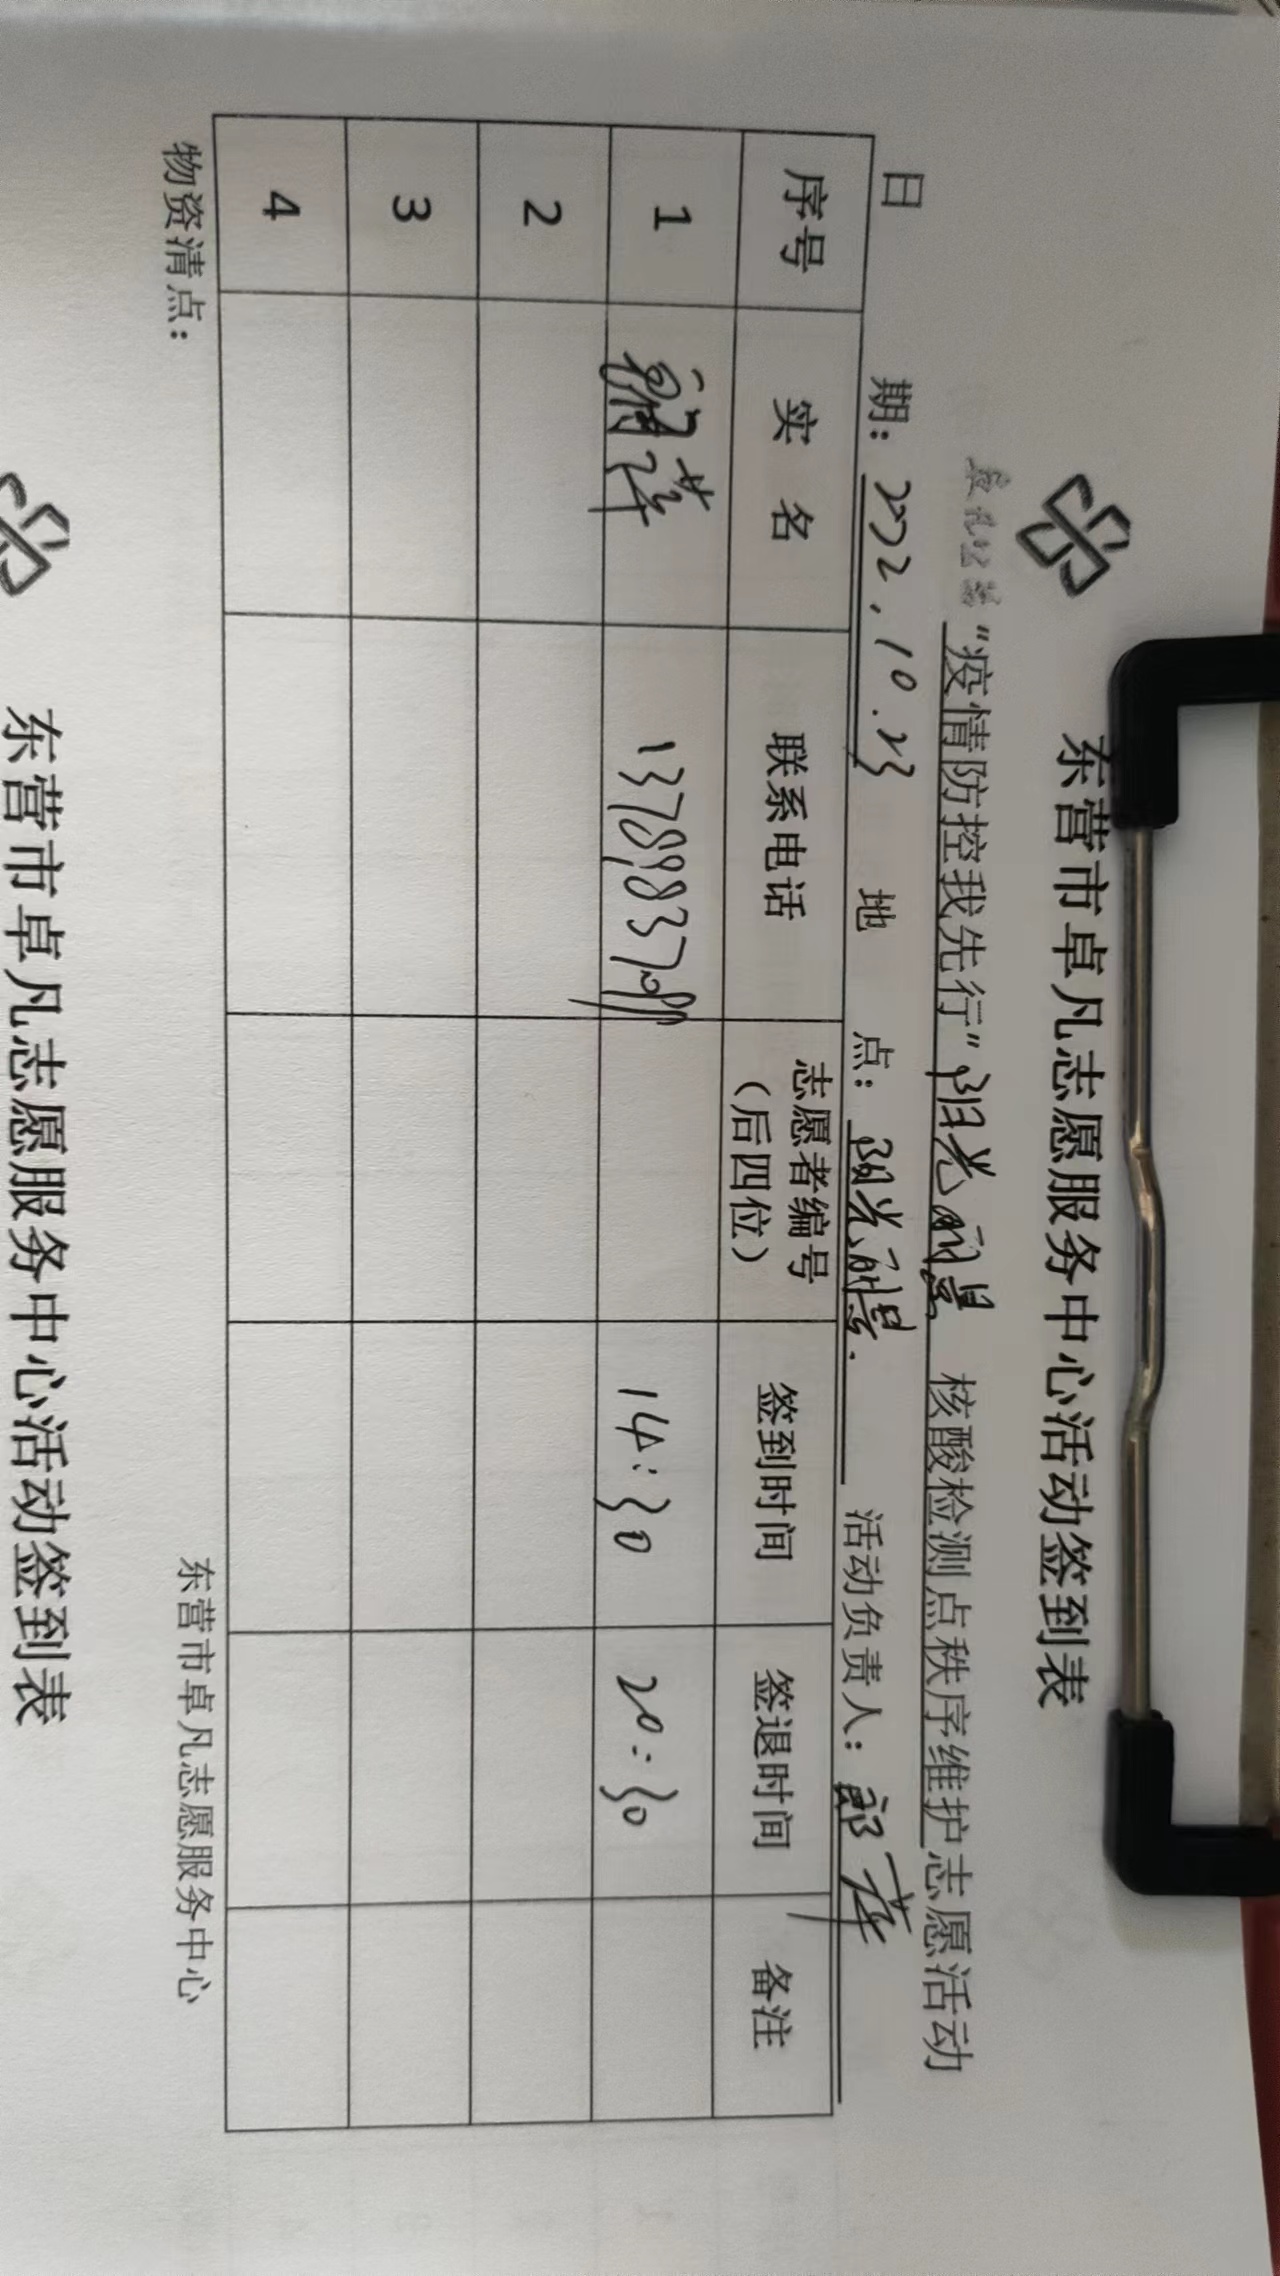 东营市卓凡志愿服务中心活动签到表
“疫情防控我先行”阳光丽景 核酸检测点秩序维护志愿活动
日 期：2022.10.23 地 点：阳光丽景. 活动负责人：
序号 实 名 联系电话 志愿者编号（后四位） 签到时间 签退时间 备注
1 14:30 20:30
2
3
4
物资清点： 东营市卓凡志愿服务中心
东营市卓凡志愿服务中心活动签到表